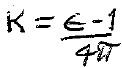 K = ϵ-1 / 4π